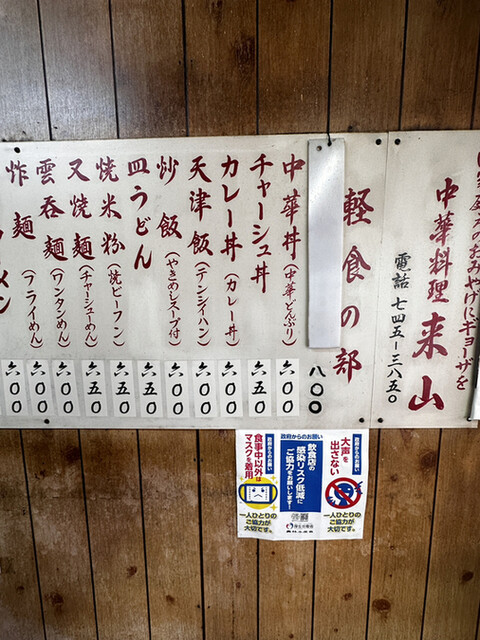 おみやげにギョーザを
中華料理 来山
電話 七四五-三八五〇
軽食の部
八〇〇
中華丼(中華どんぶり) 六〇〇
チャーシュ丼 六五〇
カレー丼(カレー丼) 六〇〇
天津飯(テンシイハン) 六〇〇
炒飯(やきめしスープ付) 六〇〇
皿うどん 六五〇
焼米粉(焼ビーフン) 六五〇
叉焼麺(チャーシューめん) 六五〇
雲呑麺(ワンタンめん) 六〇〇
炸麺(フライめん) 六〇〇
メン 六〇〇
政府からのお願い
大声を
出さない
一人ひとりの
ご協力が
大切です。
政府からのお願い
飲食店の
感染リスク低減に
ご協力をお願いします!
厚生労働省
政府からのお願い
食事中以外は
マスクを着用
一人ひとりの
ご協力が
大切です。